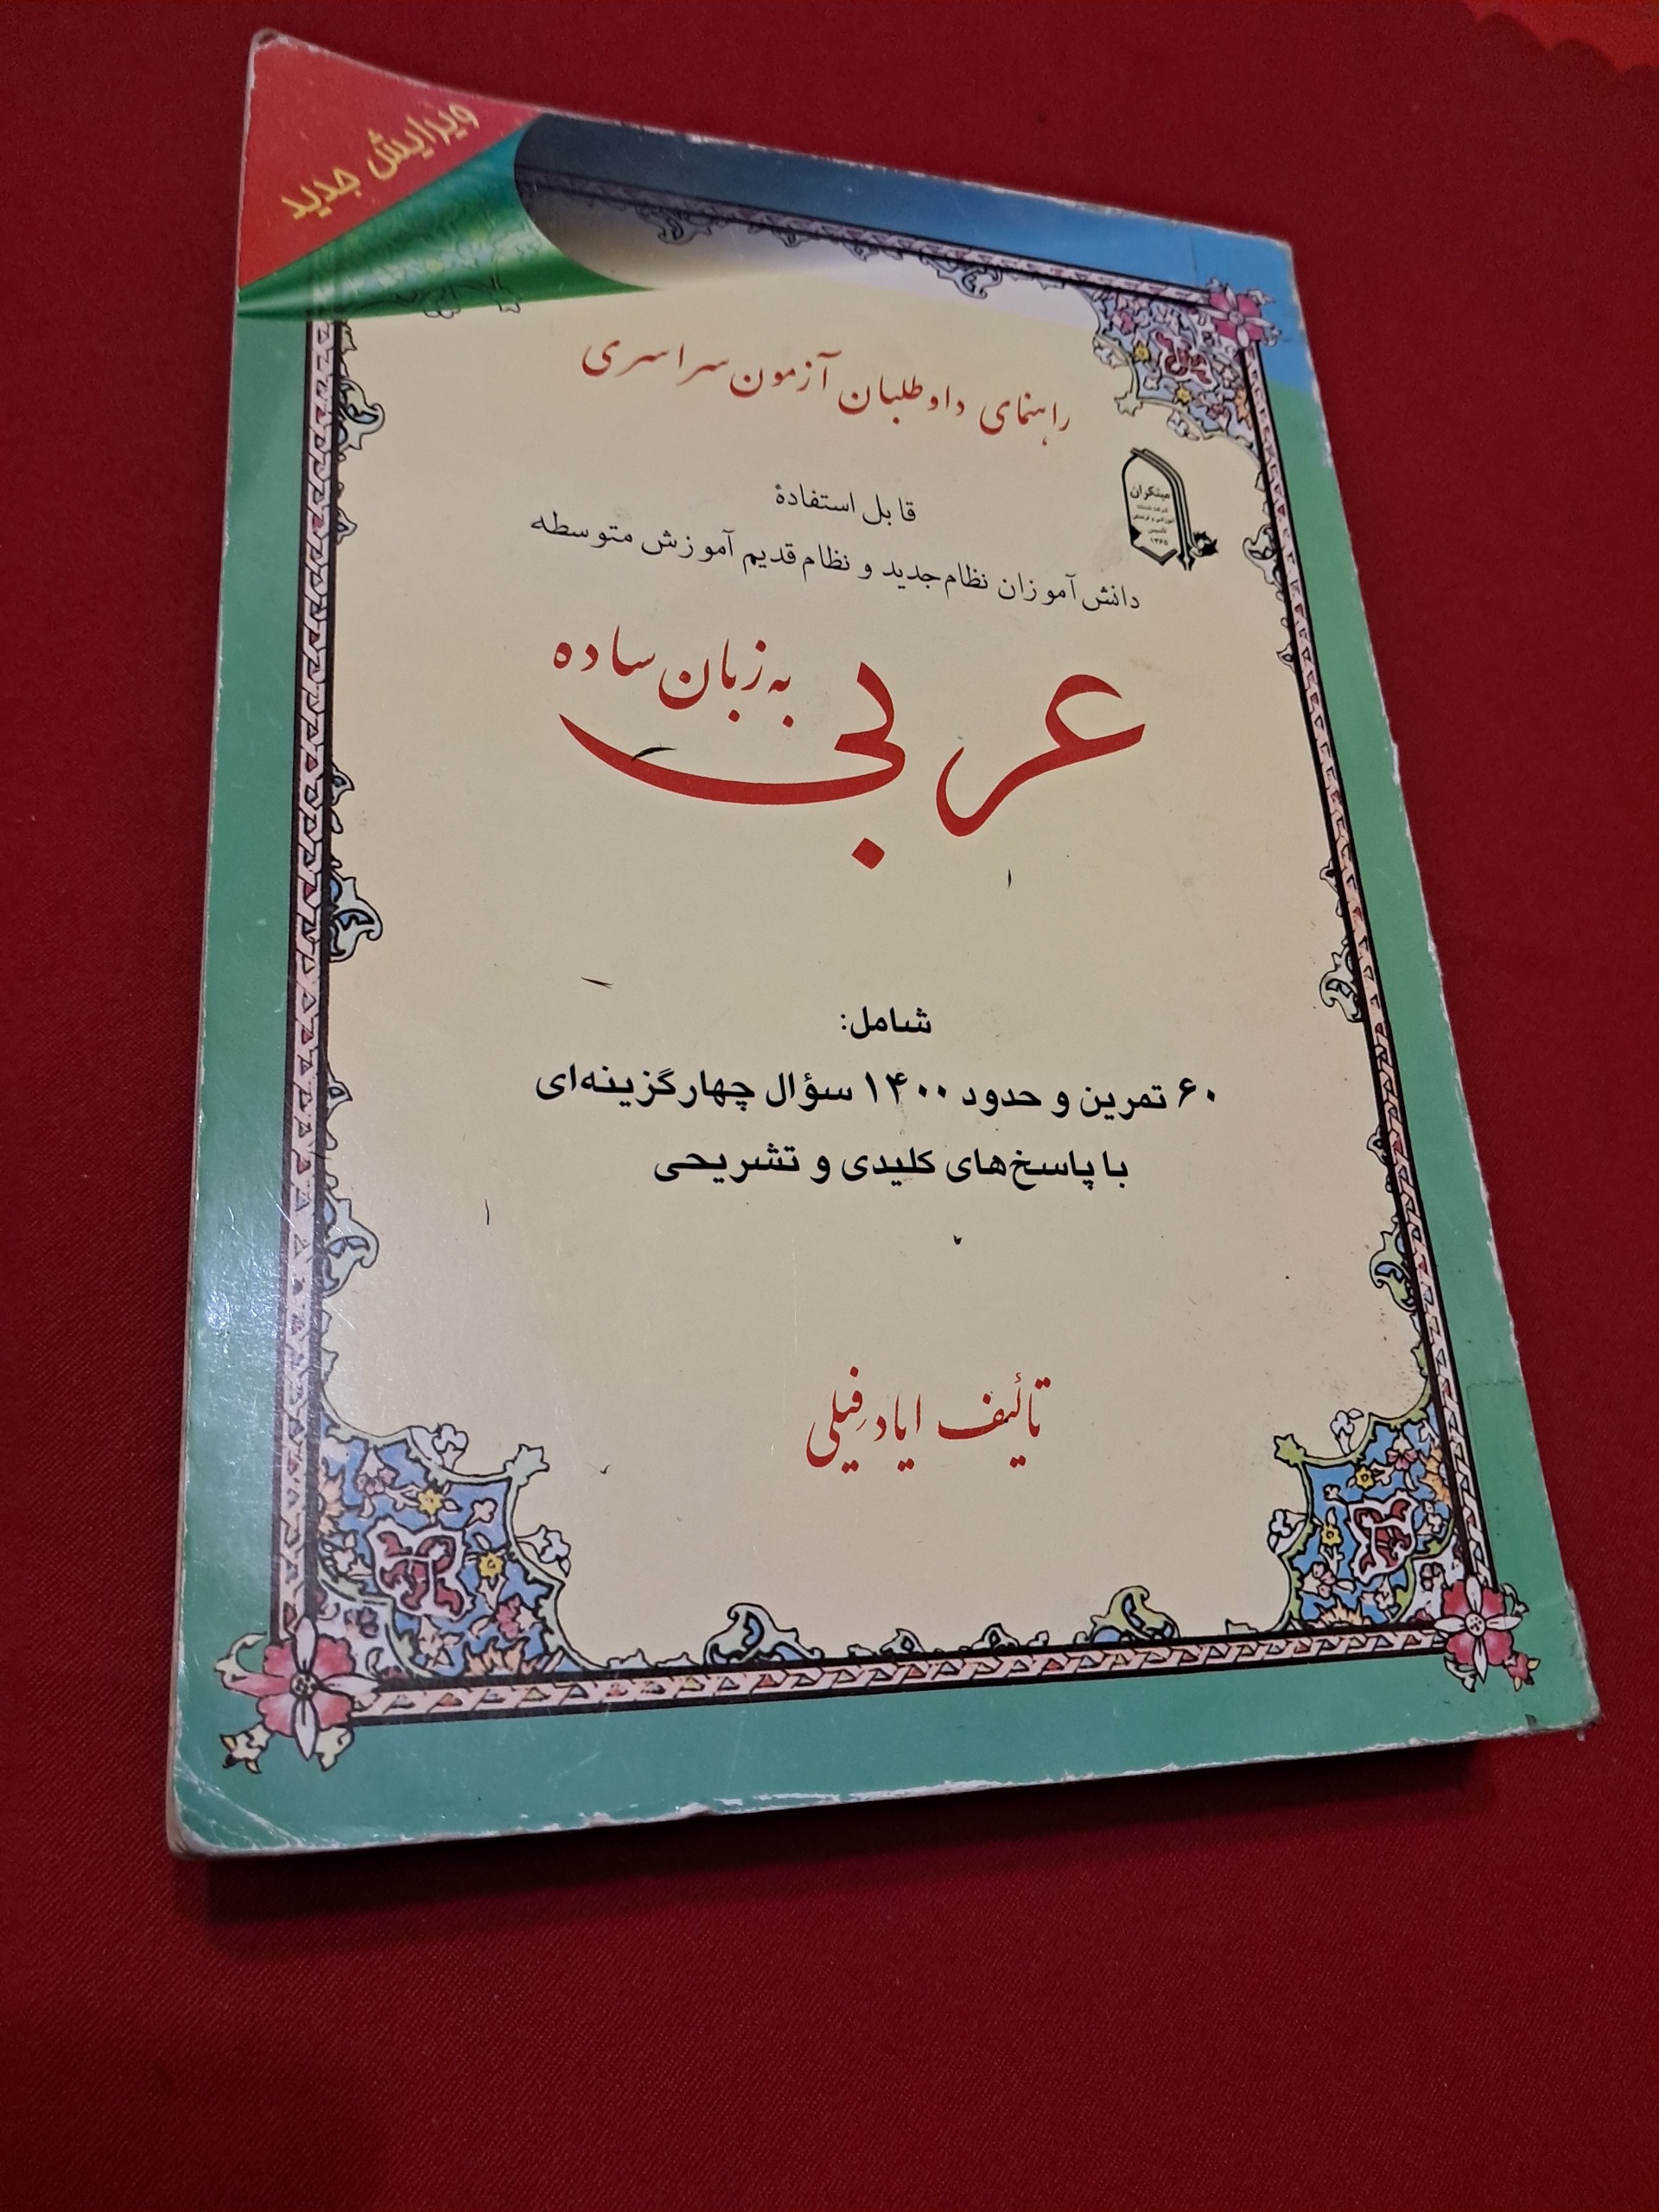 ویرایش جدید
راهنمای داوطلبان آزمون سراسری
قابل استفادهٔ
دانش‌آموزان نظام جدید و نظام قدیم آموزش متوسطه
مبتکران
تأسیس
۱۳۶۵
عربی
به زبان ساده
شامل:
۶۰ تمرین و حدود ۱۴۰۰ سؤال چهارگزینه‌ای
با پاسخ‌های کلیدی و تشریحی
تألیف ایاد فیلی